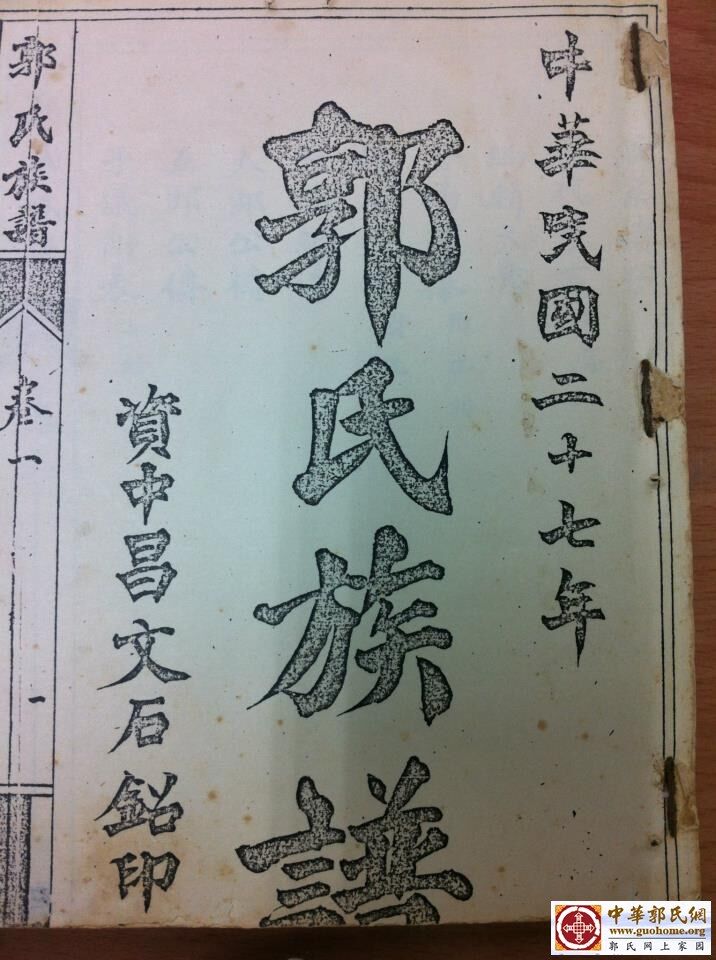 中華民國二十七年
郭氏族譜
資中昌文石鉛印
郭氏族譜
卷一
一
中華郭氏网
www.guohome.org
郭氏网上家园